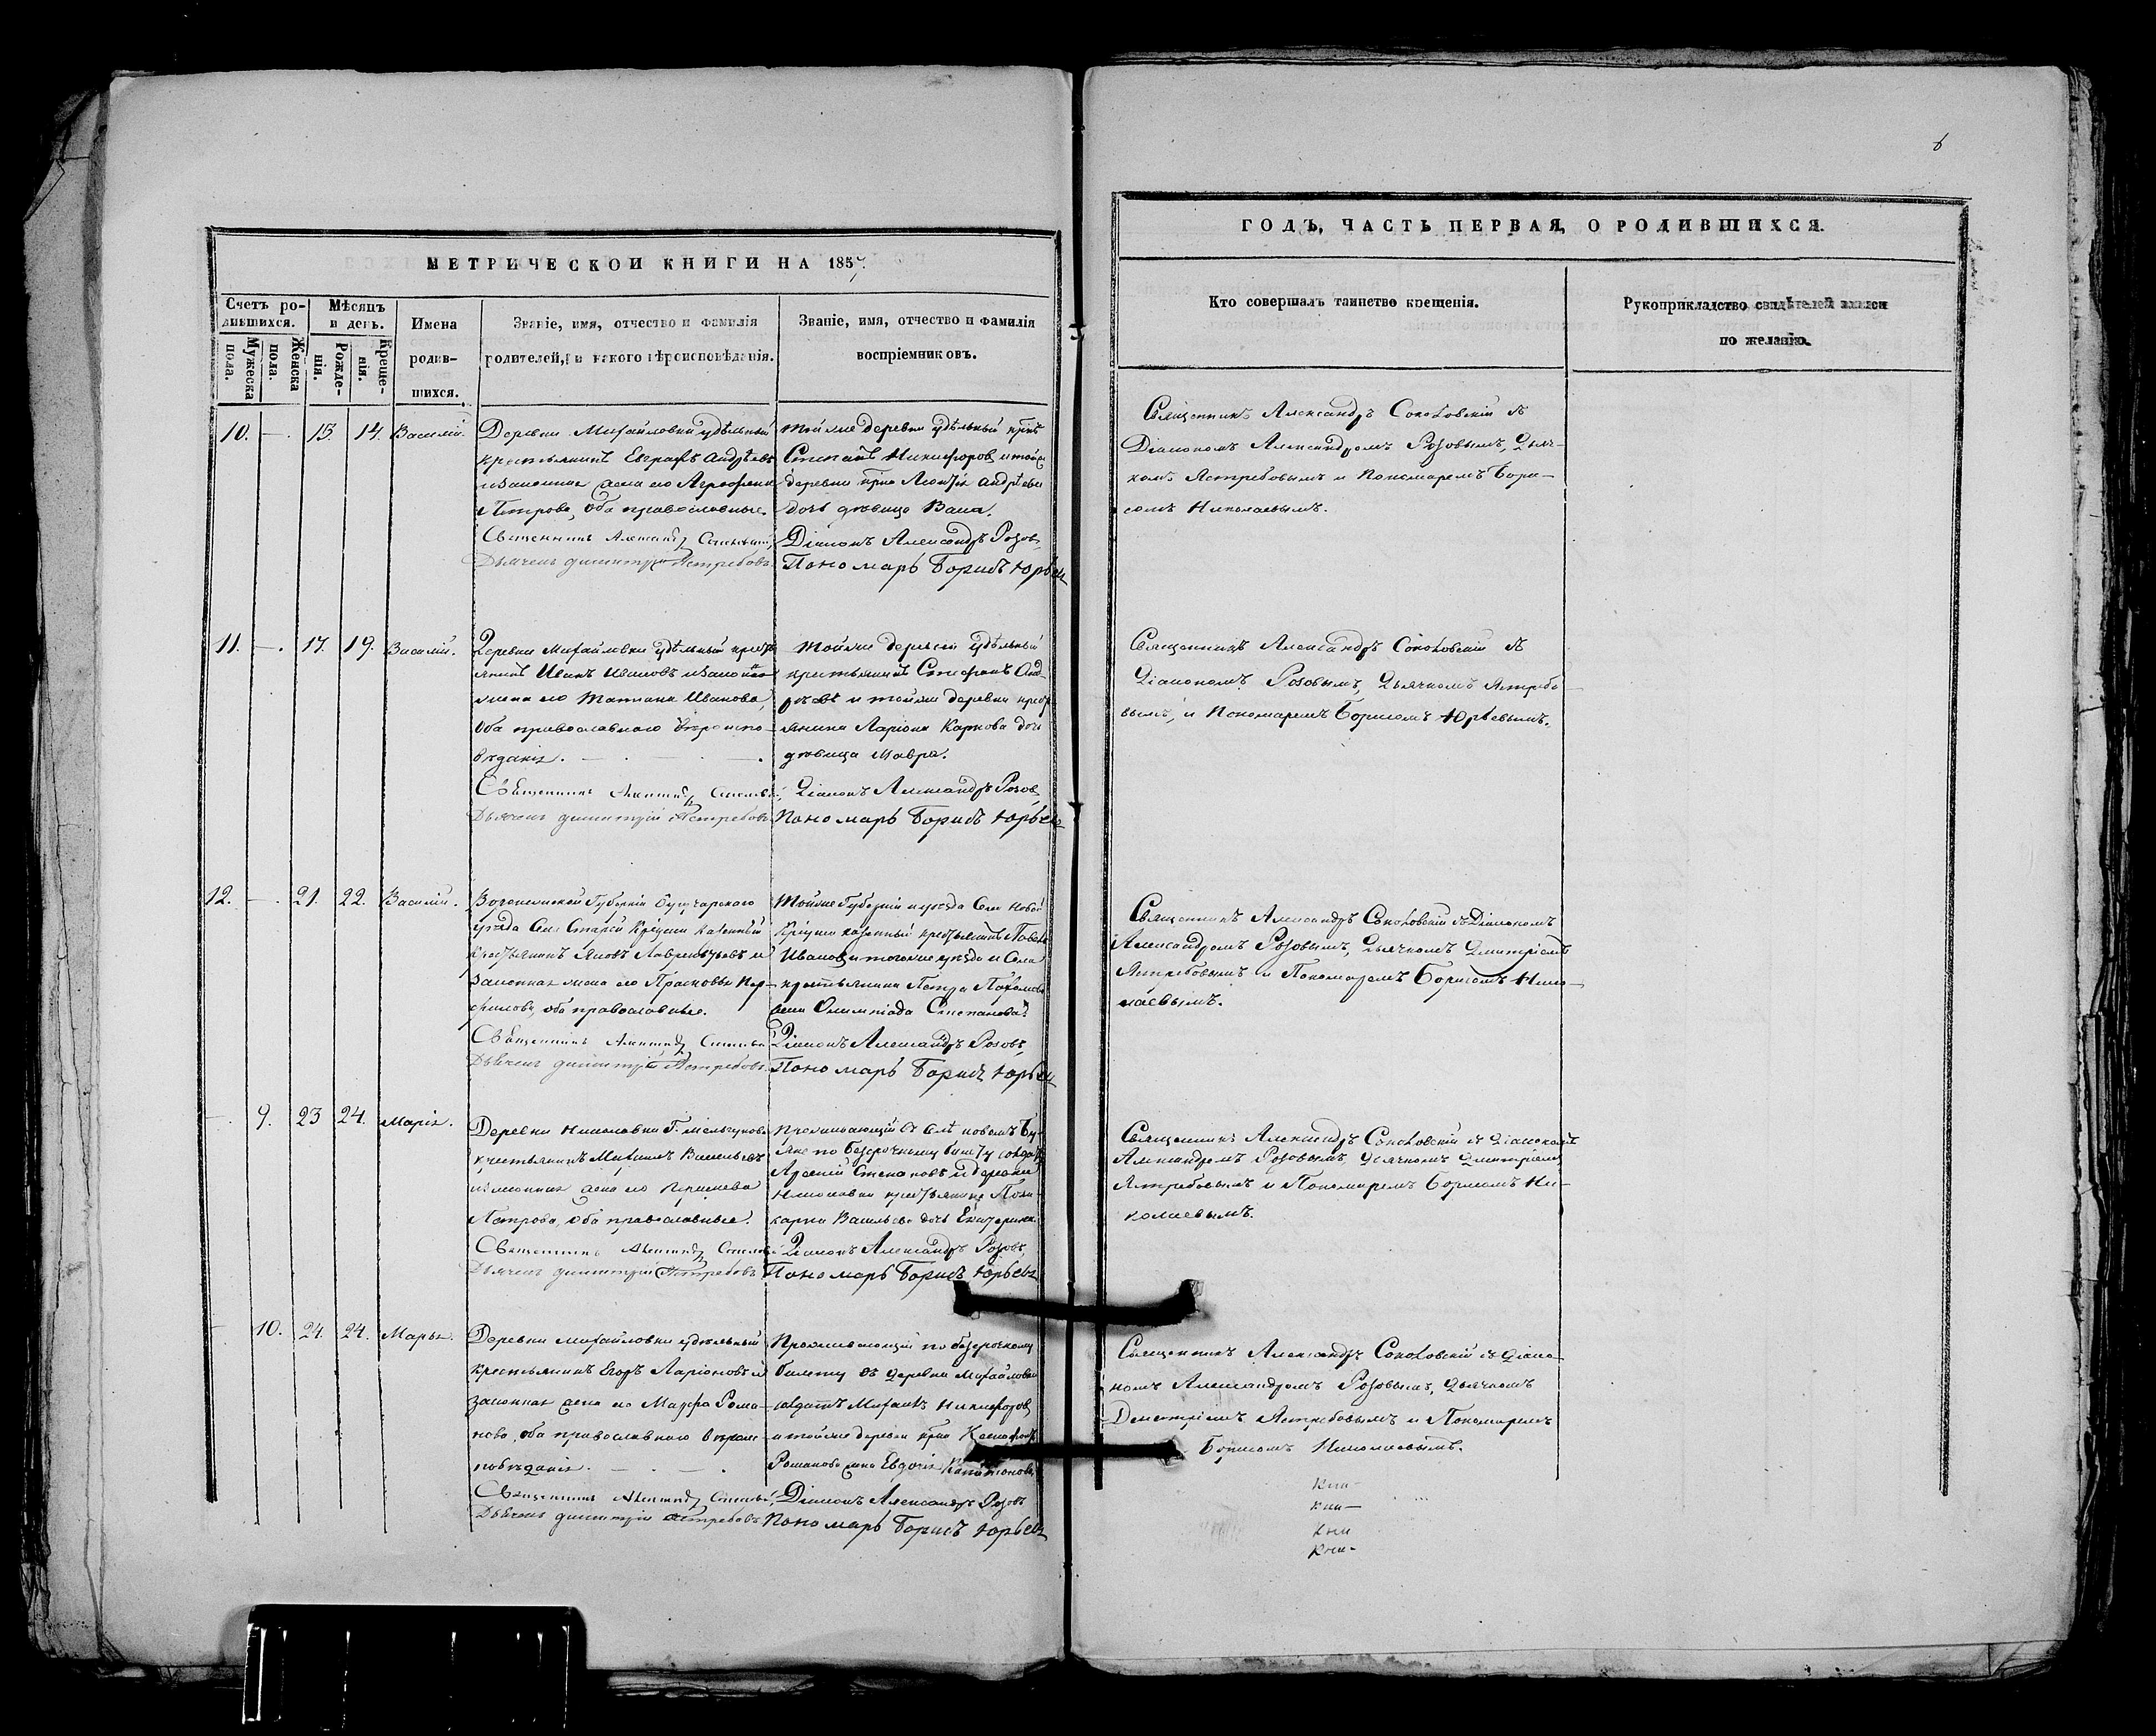 6
МЕТРИЧЕСКОЙ КНИГИ НА 1857
ГОДЪ, ЧАСТЬ ПЕРВАЯ, О РОДИВШИХСЯ.
Счетъ ро-
дившихся.
Мужеска
пола.
Женска
пола.
Мѣсяцъ
и день.
Рожде-
нія.
Креще-
нія.
Имена
родив-
шихся.
Званіе, имя, отчество и фамилія
родителей, и какого вѣроисповѣданія.
Званіе, имя, отчество и фамилія
воспріемниковъ.
Кто совершалъ таинство крещенія.
Рукоприкладство свидѣтелей записи
по желанію.
10. — 13. 14. Василій.
Деревни Михайловки удѣльный
крестьянинъ Евграфъ Андрѣевъ
и законная жена его Агрофена
Петрова, оба православные.
Священникъ Александръ
Дьячекъ Димитрій Ястребовъ
тойже деревни удѣльный
Степанъ Никифоровъ и тойже
деревни Андрѣева
дочь дѣвица
Діаконъ Александръ Розовъ
Пономарь Борисъ Юрьевъ
Священникъ Александръ Соколовскій съ
Діакономъ Александромъ Розовымъ, Дьяч-
комъ Ястребовымъ и Пономаремъ Бори-
сомъ Николаевымъ.
11. — 17. 19. Василій.
Деревни Михайловки удѣльный крестья
янинъ Иванъ Ивановъ и законная
жена его Татіана Иванова,
оба православнаго вѣроиспо-
вѣданія.
Священникъ Александръ
Дьячекъ Димитрій Ястребовъ
тойже деревни удѣльный
крестьянинъ Стефанъ Анд-
рѣевъ и тойже деревни кресть
янина Ларіона Карпова дочь
дѣвица Мавра.
Діаконъ Александръ Розовъ
Пономарь Борисъ Юрьевъ
Священникъ Александръ Соколовскій съ
Діакономъ Розовымъ, Дьячкомъ Ястребо-
вымъ, и Пономаремъ Борисомъ Юрьевымъ.
12. — 21. 22. Василій.
Воронежской Губерніи Бугучарскаго
уѣзда Села Старой Криуши казенный
крестьянинъ Яковъ Лаврентьевъ и
законная жена его Прасковья
оба православные.
Священникъ Александръ
Дьячекъ Димитрій Ястребовъ
Тойже Губерніи и уѣзда Села Новой
Криуши казенный крестьянинъ Павелъ
Ивановъ и тогоже уѣзда и Села
крестьянина Петра
жена Олимпіада Степанова.
Діаконъ Александръ Розовъ
Пономарь Борисъ Юрьевъ
Священникъ Александръ Соколовскій съ Діакономъ
Александромъ Розовымъ, Дьячкомъ Димитріемъ
Ястребовымъ и Пономаремъ Борисомъ Нико-
лаевымъ.
— 9. 23 24. Марія.
Деревни Николаевки Г. Мельгунова
крестьянинъ Михаилъ Васильевъ
и законная жена его
Петрова, оба православные.
Священникъ Александръ
Дьячекъ Димитрій Ястребовъ
Проживающій въ Селѣ новомъ
по безсрочному билету солдатъ
Арсеній Степановъ и деревни
Николаевки крестьянина Поли-
карпа Васильева дочь Екатерина
Діаконъ Александръ Розовъ
Пономарь Борисъ Юрьевъ
Священникъ Александръ Соколовскій съ Діакономъ
Александромъ Розовымъ, Дьячкомъ Димитріемъ
Ястребовымъ и Пономаремъ Борисомъ Ни-
колаевымъ.
— 10. 24. 24. Марья.
Деревни Михайловки удѣльный
крестьянинъ Егоръ Ларіоновъ и
законная жена его Марфа Рома-
нова, оба православнаго вѣроис-
повѣданія.
Священникъ Александръ
Дьячекъ Димитрій Ястребовъ
Проживающій по безсрочному
билету въ деревни Михайловки
солдатъ Михаилъ Никифоровъ
и тойже деревни
Романова жена Евдокія
Діаконъ Александръ Розовъ
Пономарь Борисъ Юрьевъ
Священникъ Александръ Соколовскій съ Діако-
номъ Александромъ Розовымъ, Дьячкомъ
Деметріемъ Ястребовымъ и Пономаремъ
Борисомъ Николаевымъ.